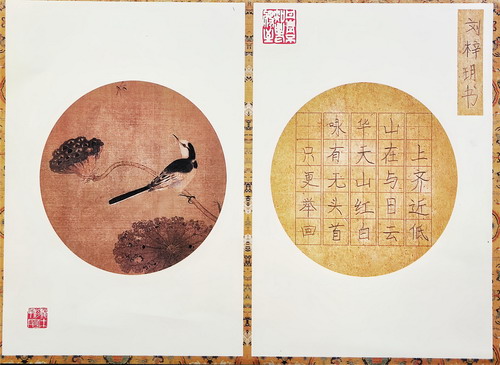 咏华山
只有天在上
更无山与齐
举头红日近
回首白云低
刘梓玥书